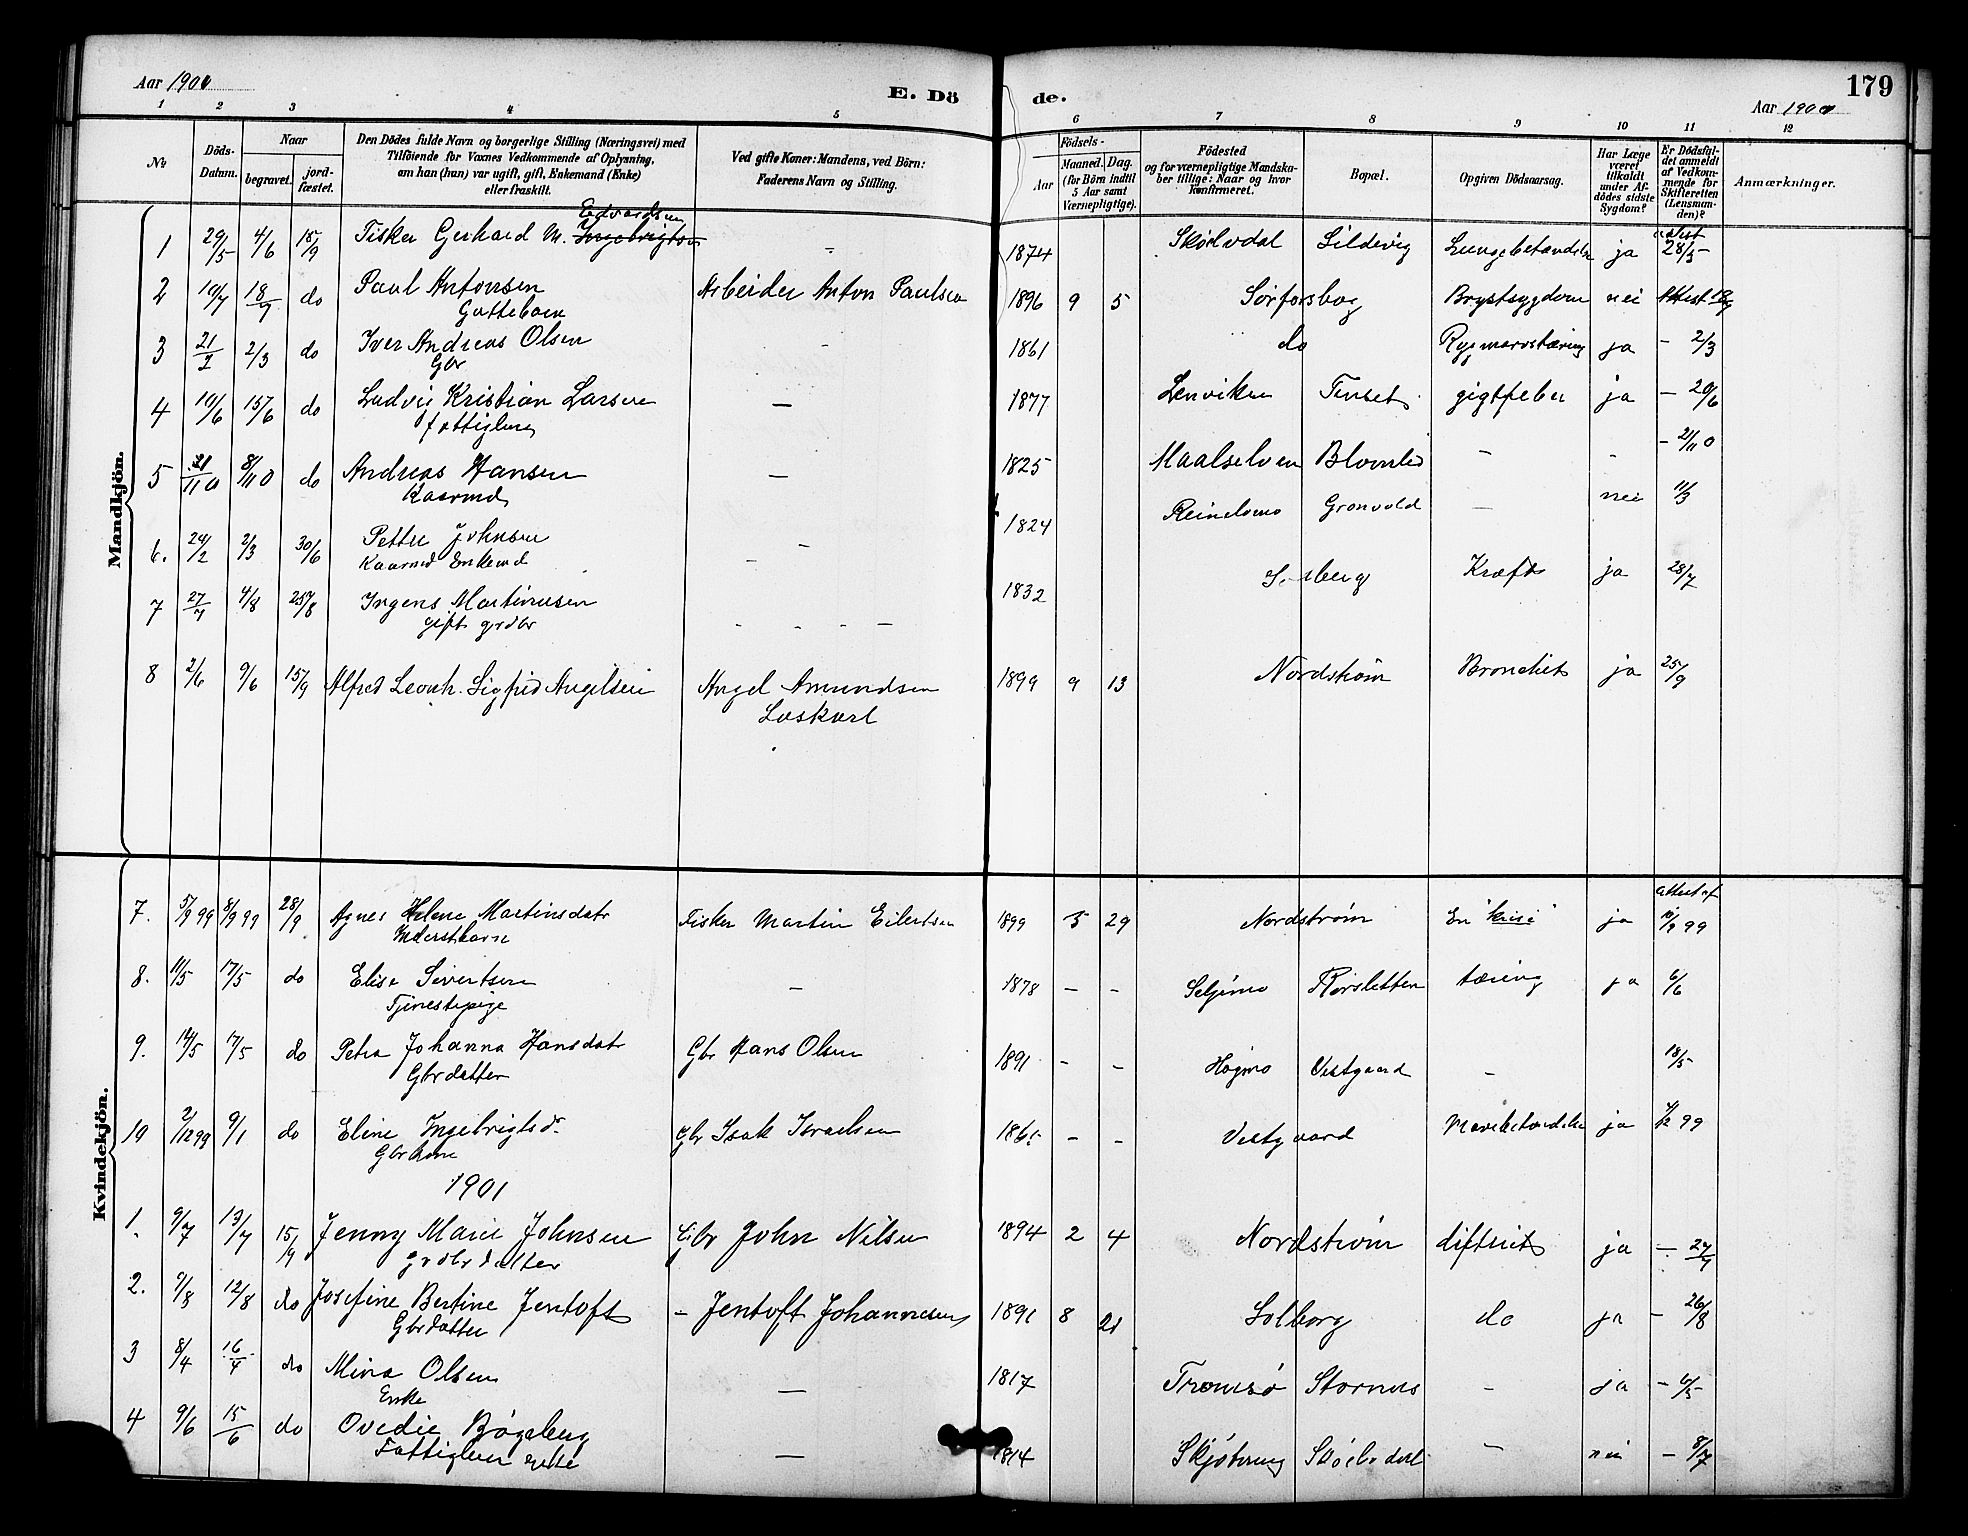 Aar 1900
E. Dö
de.
Aar 1900
179
1 2 3 4 5 6 7 8 9 10 11 12
No
Döds-Datum.
Naar
begravet.
jord-fæstet.
Den Dödes fulde Navn og borgerlige Stilling (Næringsvei) med
Tilföiende for Voxnes Vedkommende af Oplysning,
om han (hun) var ugift, gift, Enkemand (Enke)
eller fraskilt.
Ved gifte Koner: Mandens, ved Börn:
Faderens Navn og Stilling.
Födsels-
Aar
Maaned. Dag.
(for Börn indtil
5 Aar samt
Værnepligtige).
Födested
og for værnepligtige Mandska-
ber tillige: Naar og hvor
konfirmeret.
Bopæl.
Opgiven Dödsaarsag.
Har Læge
været
tilkaldt
under Af-
dödes sidste
Sygdom?
Er Dödsfal-
det anmeldt
af Vedkom-
mende for
Skifteretten
(Lensman-
den)?
Anmærkninger.
Mandkjön.
Edvardsen
1 29/5 4/6 15/9 Fisker Gerhard M. Ingebrigtsen – 1874 Skødvdal Sildvig Lungebetændelse ja attest 28/5
2 10/7 18/7 do Paul Antonsen Arbeider Anton Paulsen 1896 9 5 Sørforsbog Brystsygdom nei Attest
Guttebarn
3 21/2 2/3 do Iver Andreas Olsen - 1861 do Rygmarvstæring ja – 2/3
Gbr
4 10/6 15/6 do Ludvig Kristian Larsen — 1877 Lenviken Finset gigtfeber ja – 20/6
fattiglem
5 31/10 8/11 0 do Andreas Hansen — 1825 Maalselven Blomlid – - – 2/11 0
Kaarmd
6. 24/2 2/3 30/6 Petter Johnsen – 1824 Reinelvmo Grønvold — nei 11/3
Kaarmd Enkemd –
7 27/7 4/8 25/8 Ingens Martinusen - - - – 1832 Kræft ja 28/7
gift grdbr
8 2/6 9/6 15/9 Alfred Leonh. Sigfrid Angelsen Angel Amundsen 1899 9 13 Nordstrøm Bronchit ja 25/9
Løskarl
Kvindekjön.
7. 5/9 99 8/9 99 28/9 Agnes Helene Martinsdatr Fisker Martin Eilertsen 1899 5 29 Nordstrøm En "krise" ja attest af 99
Inderstbarn
8. 11/5 17/5 do Elise Sivertsen – 1878 – - Seljemo Rørsletten tæring ja 6/6
Tjenestepige
9. 14/5 17/5 do Petra Johanna Hansdatr Gbr Hans Olsen 1891 - – Høgmo Vestgaard – 18/5
Gbrdatter
10 2/12 99 9/1 do Eline Ingebrigtsd. Gbr Isak Israelsen – – Vestgaard Mavebetændelse ja 99
Gbrkone
1901
1. 9/7 13/7 15/9 Jenny Marie Johnsen Gbr John Nilsen 1894 2 4 Nordstrøm diftrit ja – 27/7
Grdbrdatter
2. 9/8 12/8 do Josefine Bertine Jentoft – Jentoft Johannesen 1891 8 21 Solborg do ja – 26/8
Gbrdatter
3 8/4 16/4 do Mina Olsen — 1817 Tromsø Stornes – ja – 6/5
Enke
4 9/6 15/6 do Ovedie Bøgeberg — 1814 – nei – 8/7
Fattiglem enke